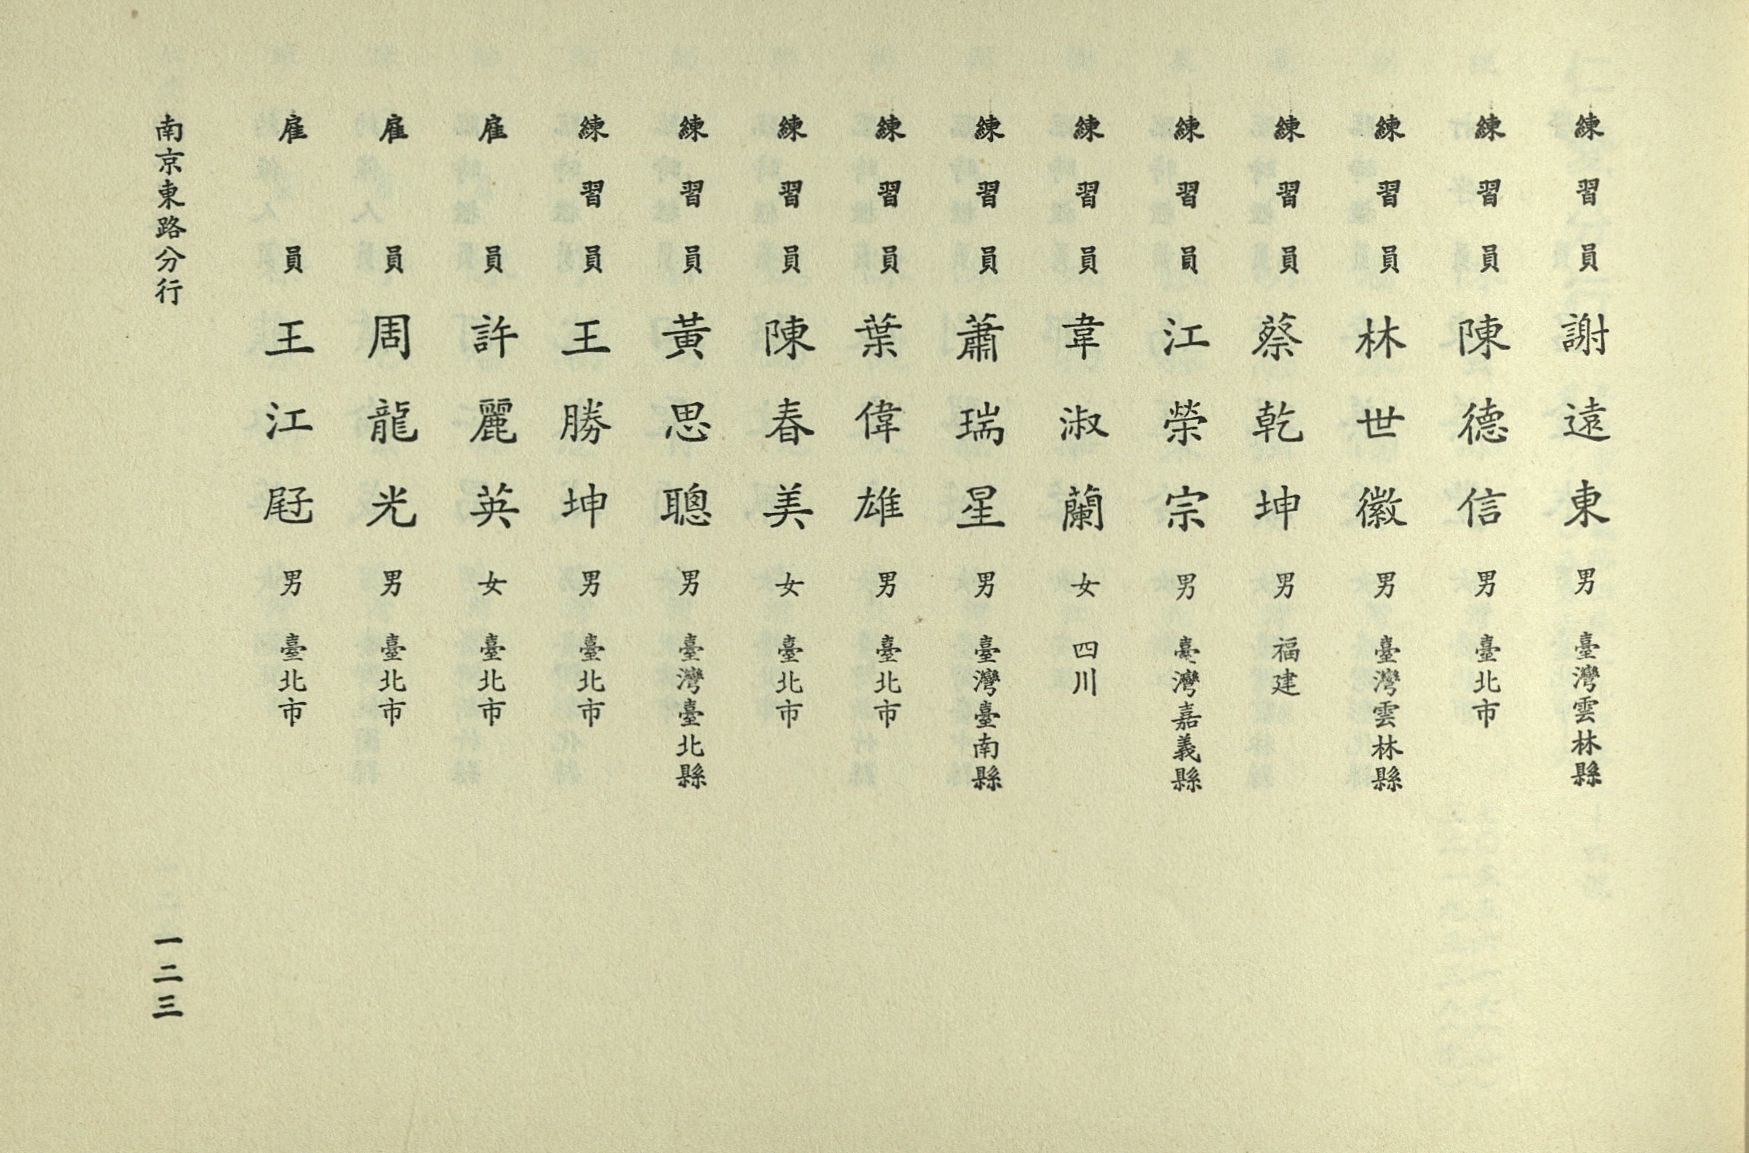 練習員 謝遠東 男 臺灣雲林縣
練習員 陳德信 男 臺北市
練習員 林世徽 男 臺灣雲林縣
練習員 蔡乾坤 男 福建
練習員 江榮宗 男 臺灣嘉義縣
練習員 韋淑蘭 女 四川
練習員 蕭瑞星 男 臺灣臺南縣
練習員 葉偉雄 男 臺北市
練習員 陳春美 女 臺北市
練習員 黃思聰 男 臺灣臺北縣
練習員 王勝坤 男 臺北市
雇員 許麗英 女 臺北市
雇員 周龍光 男 臺北市
雇員 王江 男 臺北市
南京東路分行 一二三